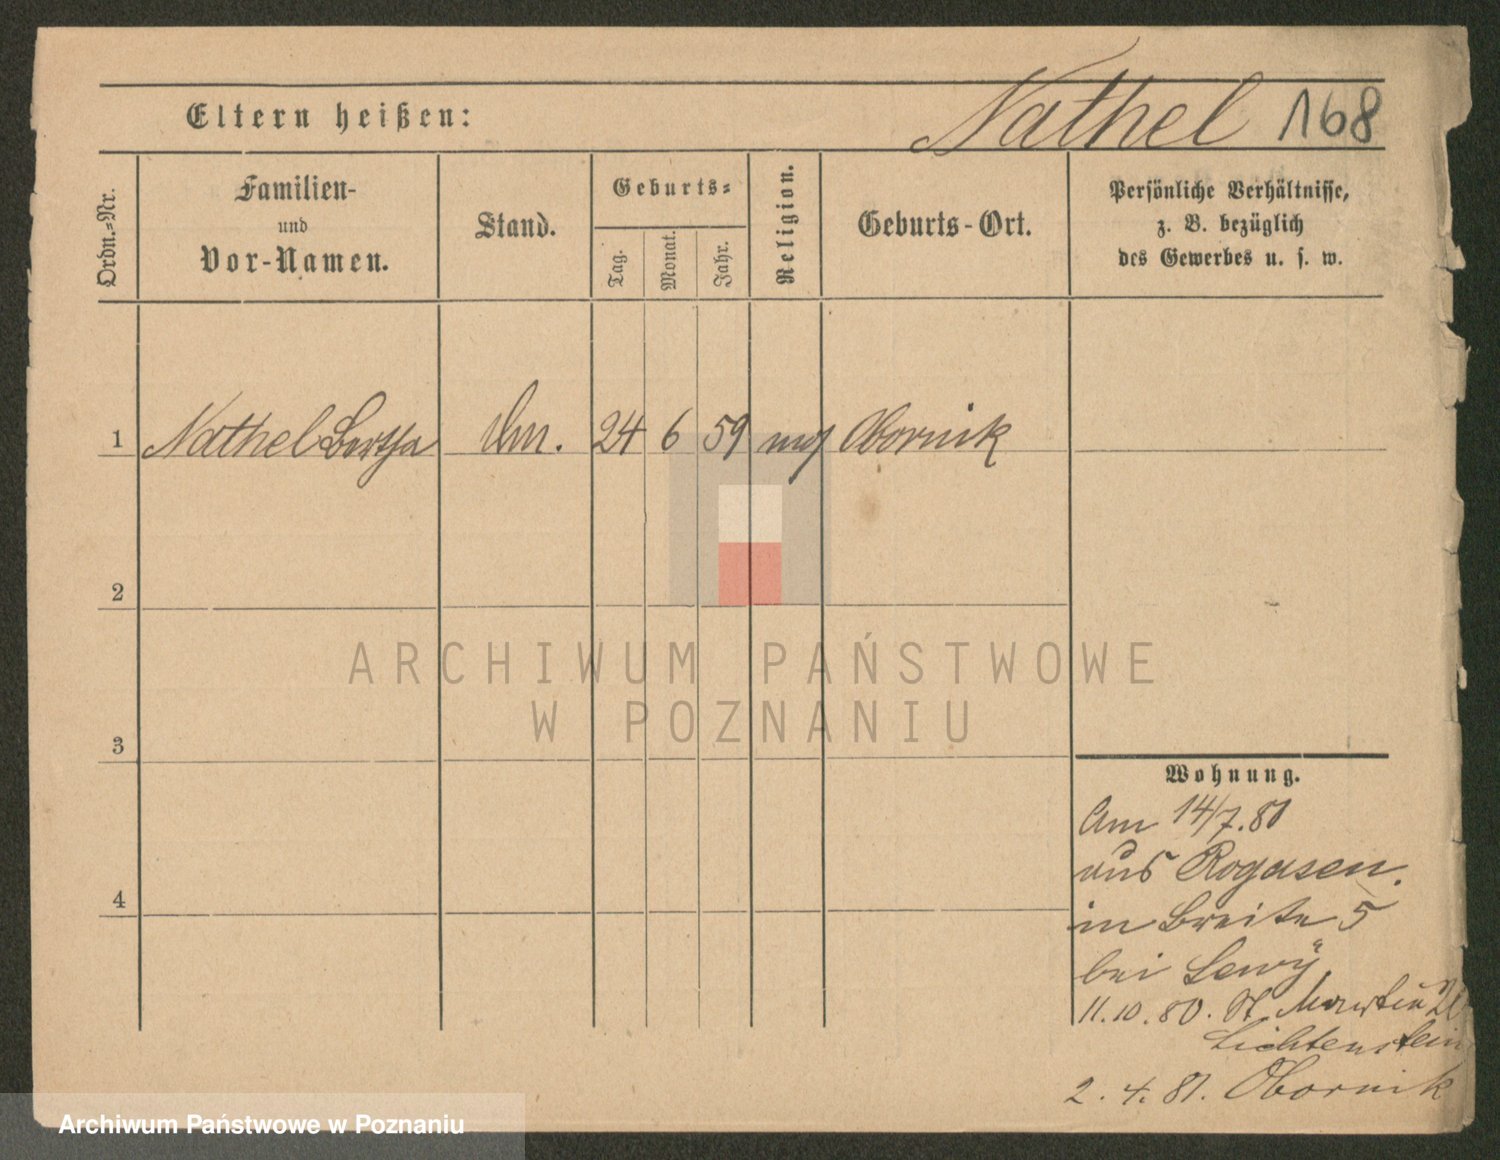 Eltern heißen:
Nathel 168
Ordn.=Nr.
Familien-
und
Vor-Namen.
Stand.
Geburts=
Tag.
Monat.
Jahr.
Religion.
Geburts-Ort.
Persönliche Verhältnisse,
z. B. bezüglich
des Gewerbes u. s. w.
1 Nathel Bertha 24 6 59 Obornik
2
3
4
ARCHIWUM PAŃSTWOWE
W POZNANIU
Wohnung.
Am 14/7.80
aus Rogasen.
in Breite 5
bei Lewy
11.10.80. St. Martin
Lichtenstein
2. 4. 81. Obornik
Archiwum Państwowe w Poznaniu